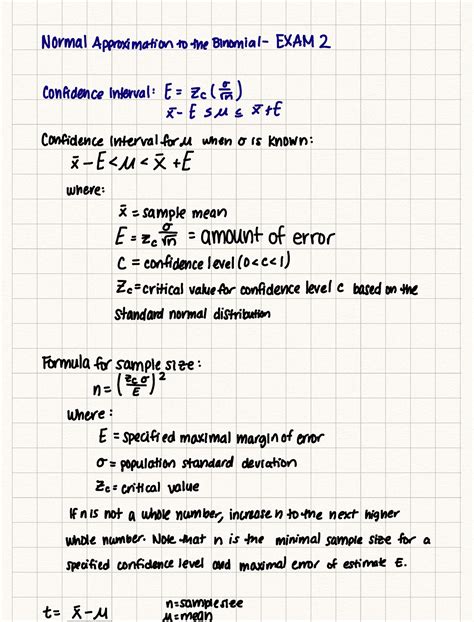 Normal Approximation to the Binomial - EXAM 2
Confidence Interval: E = Zc(σ/√n)
x̄ - E ≤ μ ≤ x̄ + E
Confidence Interval for μ when σ is known:
x̄ - E < μ < x̄ + E
where:
x̄ = sample mean
E = Zc σ/√n = amount of error
C = confidence level (0 < c < 1)
Zc = critical value for confidence level c based on the
standard normal distribution
Formula for sample size:
n = (Zc σ/E)²
where:
E = specified maximal margin of error
σ = population standard deviation
Zc = critical value
If n is not a whole number, increase n to the next higher
whole number. Note that n is the minimal sample size for a
specified confidence level and maximal error of estimate E.
n = sample size
t = x̄ - μ
μ = mean